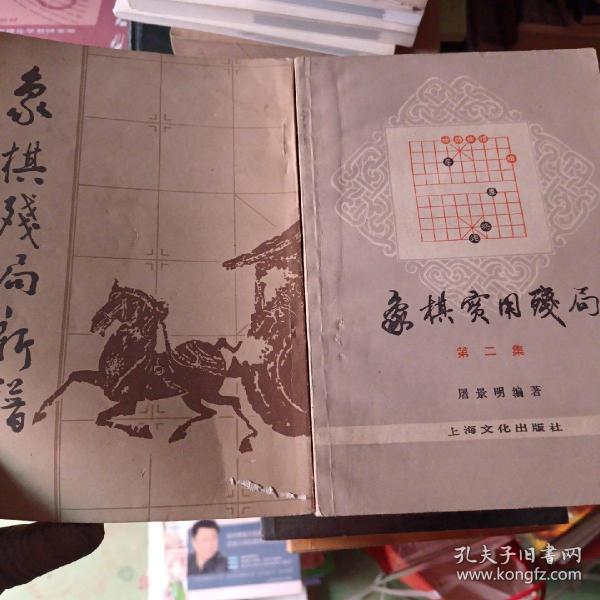 象棋残局新谱
象棋实用残局
第二集
屠景明编著
上海文化出版社
孔夫子旧书网
www.kongfz.com